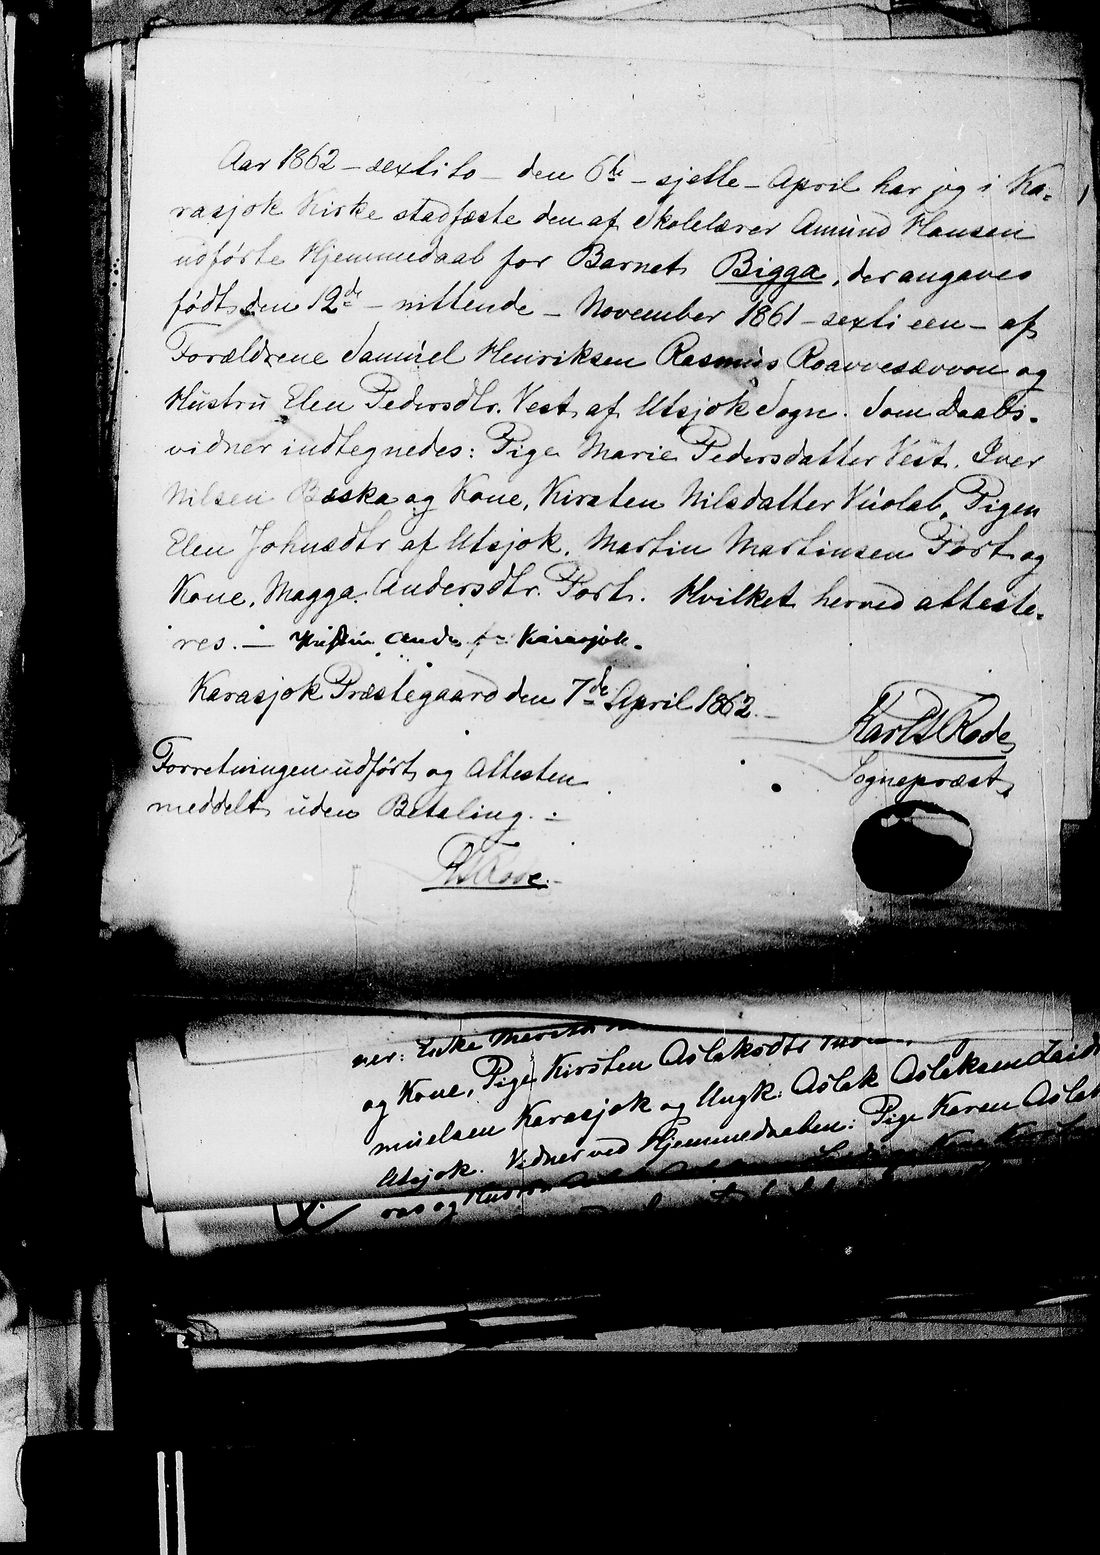 Aar 1862 – sexti to – den 6te – sjette – April har jeg i Ka=
rasjok Kirke stadfæste den af Skolelærer Amund Hansen
udførte Hjemmedaab for Barnet Bigga, der angaves
født den 12de – nittende – November 1861 – sexti een – af
Forældrene Samuel Henriksen Rasmus Roavvesavvon og
Hustru Elen Pedersdtr. Vest af Utsjok Sogn. Som Daabs-
vidner indtegnedes: Pige Marie Pedersdatter Vest, Iver
Nilsen Bæska og Kone, Kirsten Nilsdatter Vuolab, Pigen
Elen Johnsdtr af Utsjok, Martin Martinsen Port og
Kone, Magga Andersdtr. Port. Hvilket herved atteste-
res. – Karasjok.
Karasjok Præstegaard den 7de April 1862.
Karl Rode
Sognepræst
Forretningen udført og Attesten
meddelt uden Betaling.
Rode
ner: Enke
og Kone, Pige Kirsten Aslaksdtr
muelsen Karasjok og Ungk: Aslak Aslaksen
Utsjok. Vidner ved Hjemmedaaben: Pige Karen Aslak
ras og